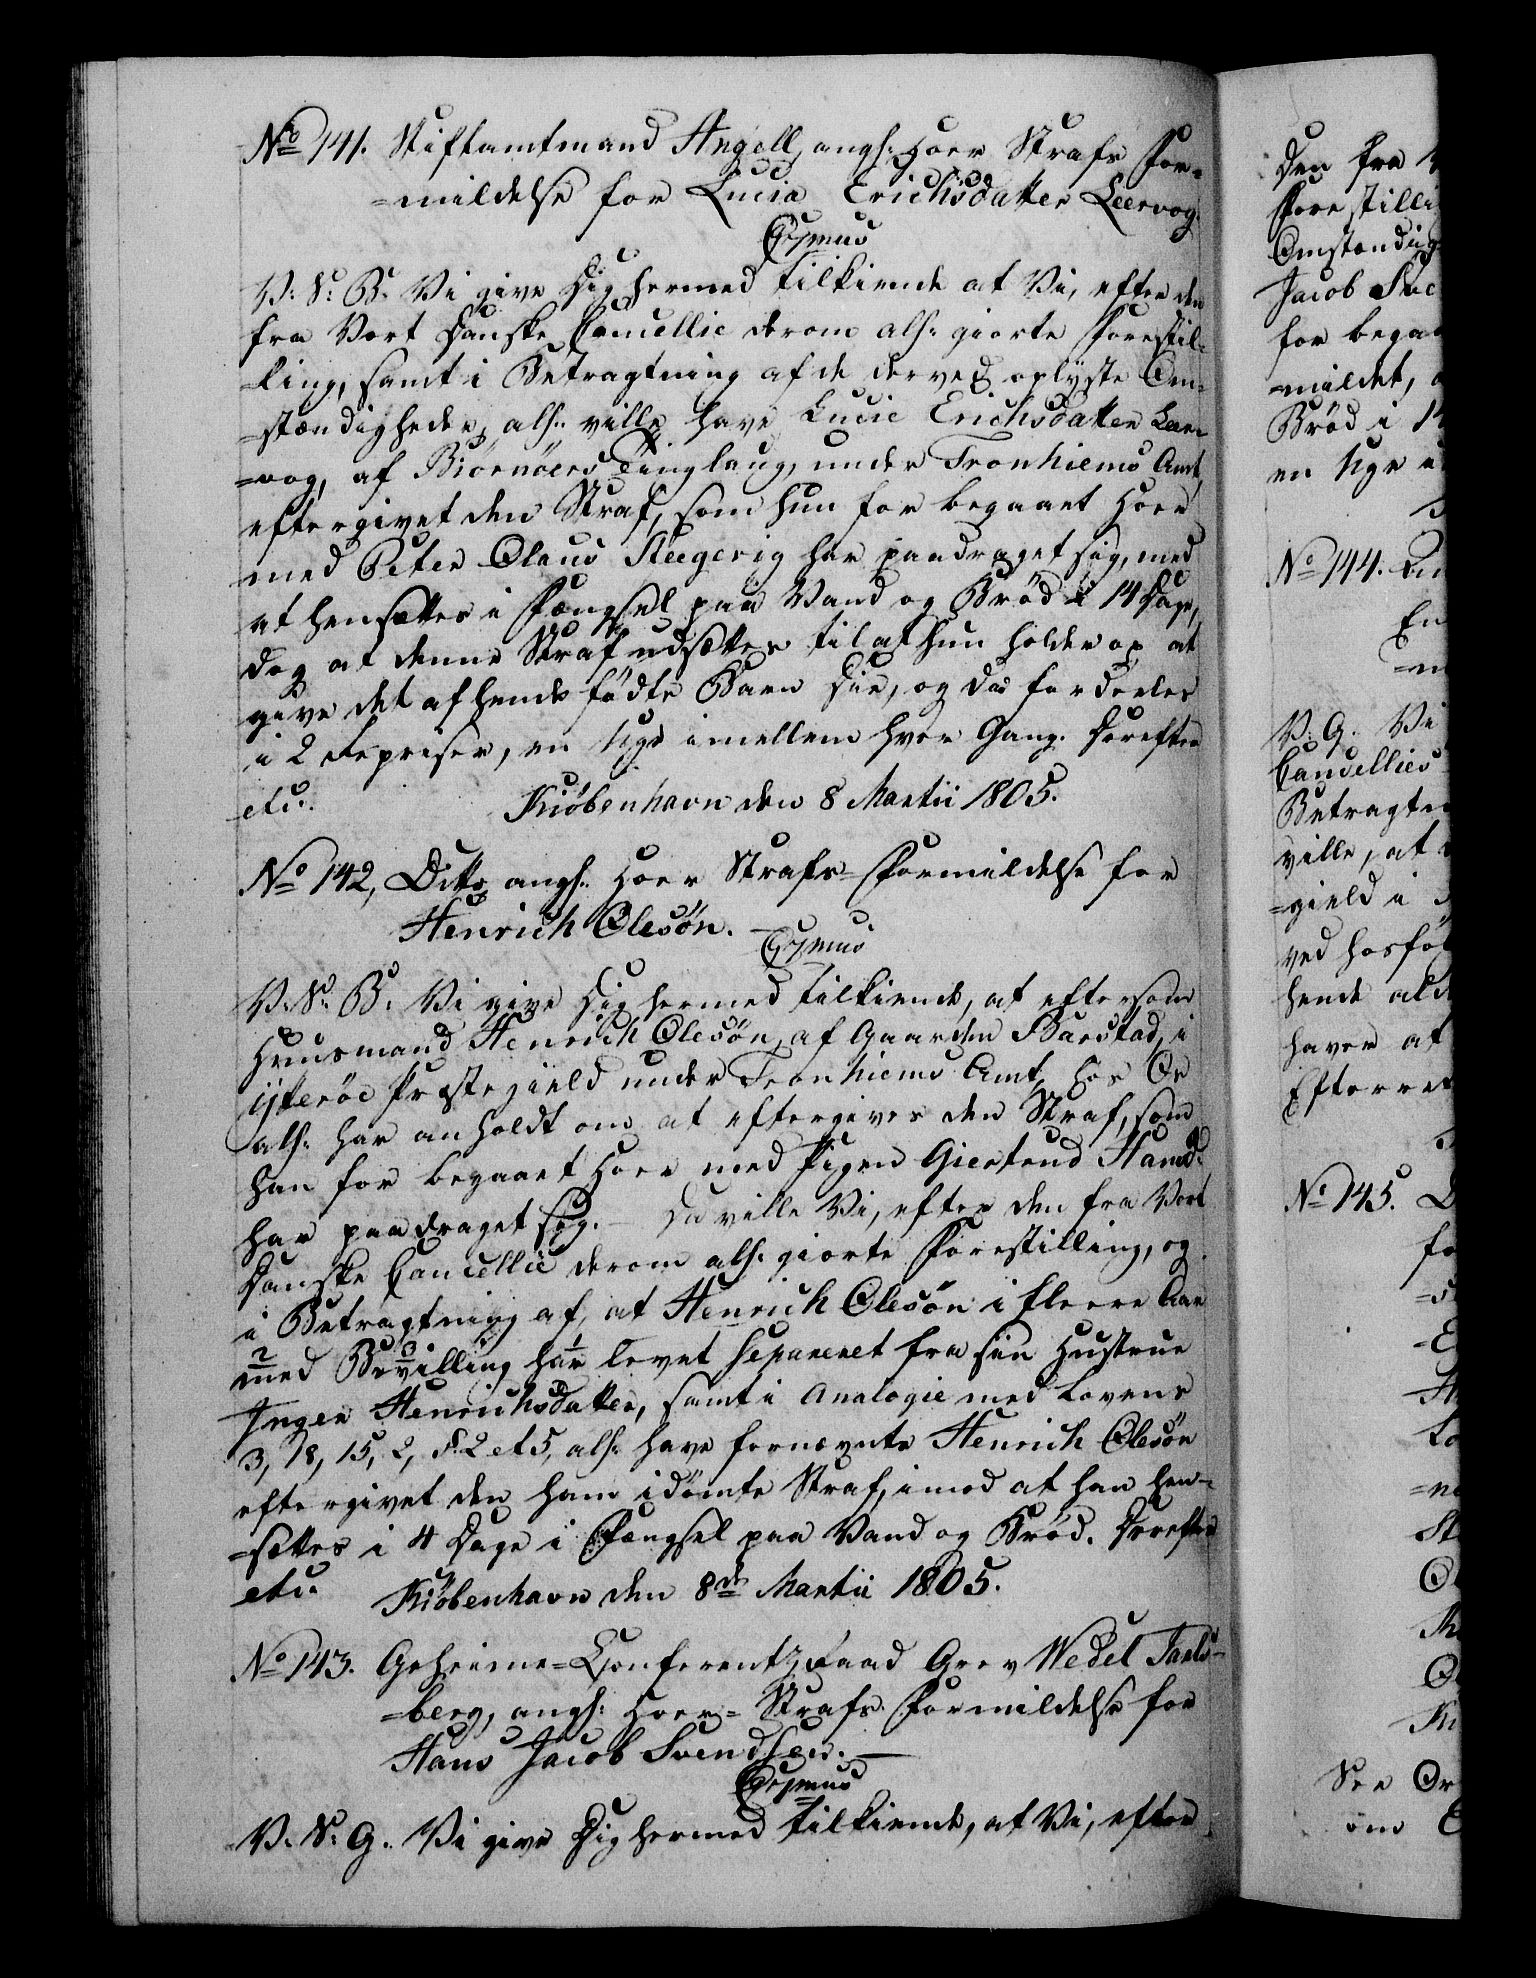 No 141. Stiftamtmand Angell, angl: Hoer Strafs For-
=mildelse for Lucia Erichsdatter Leervog.
C7mus
V: S: B: Vi give Dig hermed tilkiende at Vi, efter den
fra Vort Danske Cancellie derom alh: giorte Forestil-
=ling, samt i Betragtning af de derved oplyste Om-
=stændigheder, alh: ville have Lucie Erichsdatter Leer-
=vog, af Biørnøers Tinglaug, under Tronhiems Amt,
eftergivet den Straf, som hun for begaaet Hoer
med Peter Olaus Stegerig har paadraget sig, med
at hensættes i Fængsel paa Vand og Brød i 14 Dage,
dog at denne Straf udsættes til at hun holder op at
give det af hende fødte Barn Die, og da fordeeles
i 2 Repriser, en Uge imellem hver Gang. Derefter
etc:. Kiøbenhavn den 8 Martii 1805.
No 142, Ditto angl: Hoer Strafs-Formildelse for
Henrich Olesøn. —
C7mus
V: S: B: Vi give Dig hermed tilkiende, at eftersom
Huusmand Henrich Olesøn, af Gaarden Barstad, i
Ytterøe Præstegield under Tronhiems Amt, hos Os
alh: har anholdt om at eftergives den Straf, som
han for begaaet Hoer med Pigen Giertrud Hansd:
har paadraget sig. — Da ville Vi, efter den fra Vort
Danske Cancellie derom alh: giorte Forestilling, og
i Betragtning af, at Henrich Olesøn i fleere Aar
2 3 1
med Bevilling har levet separeret fra sin Hustrue
Inger Henrichsdatter, samt i Analogie med Lovens
3, 18, 15, 2, §. 2 et 5, alh: have fornævnte Henrich Olesøn
eftergivet den ham idømte Straf, imod at han hen-
=sættes i 4 Dage i Fængsel paa Vand og Brød. Derefter
etc. Kiøbenhavn den 8de Martii 1805.
No 143. Geheime-Conferentz Raad Grev Wedel Jarls-
=berg, angl: Hoer= Strafs Formildelse for
Hans Jacob Svendsen. —
C7mus
V: S: G: Vi give Dig hermed tilkiende, at Vi, efter
den fra
Forestilli
Omstændig
Jacob Sve
for bega
=mildet,
Brød i 1
en Uge
No 144.
En
V: G. Vi
Cancellies
Betragtn
ville, at
=gield i
ved hosfø
hende ald
haver at
Efterret
No 145. D
fo
See Or
om